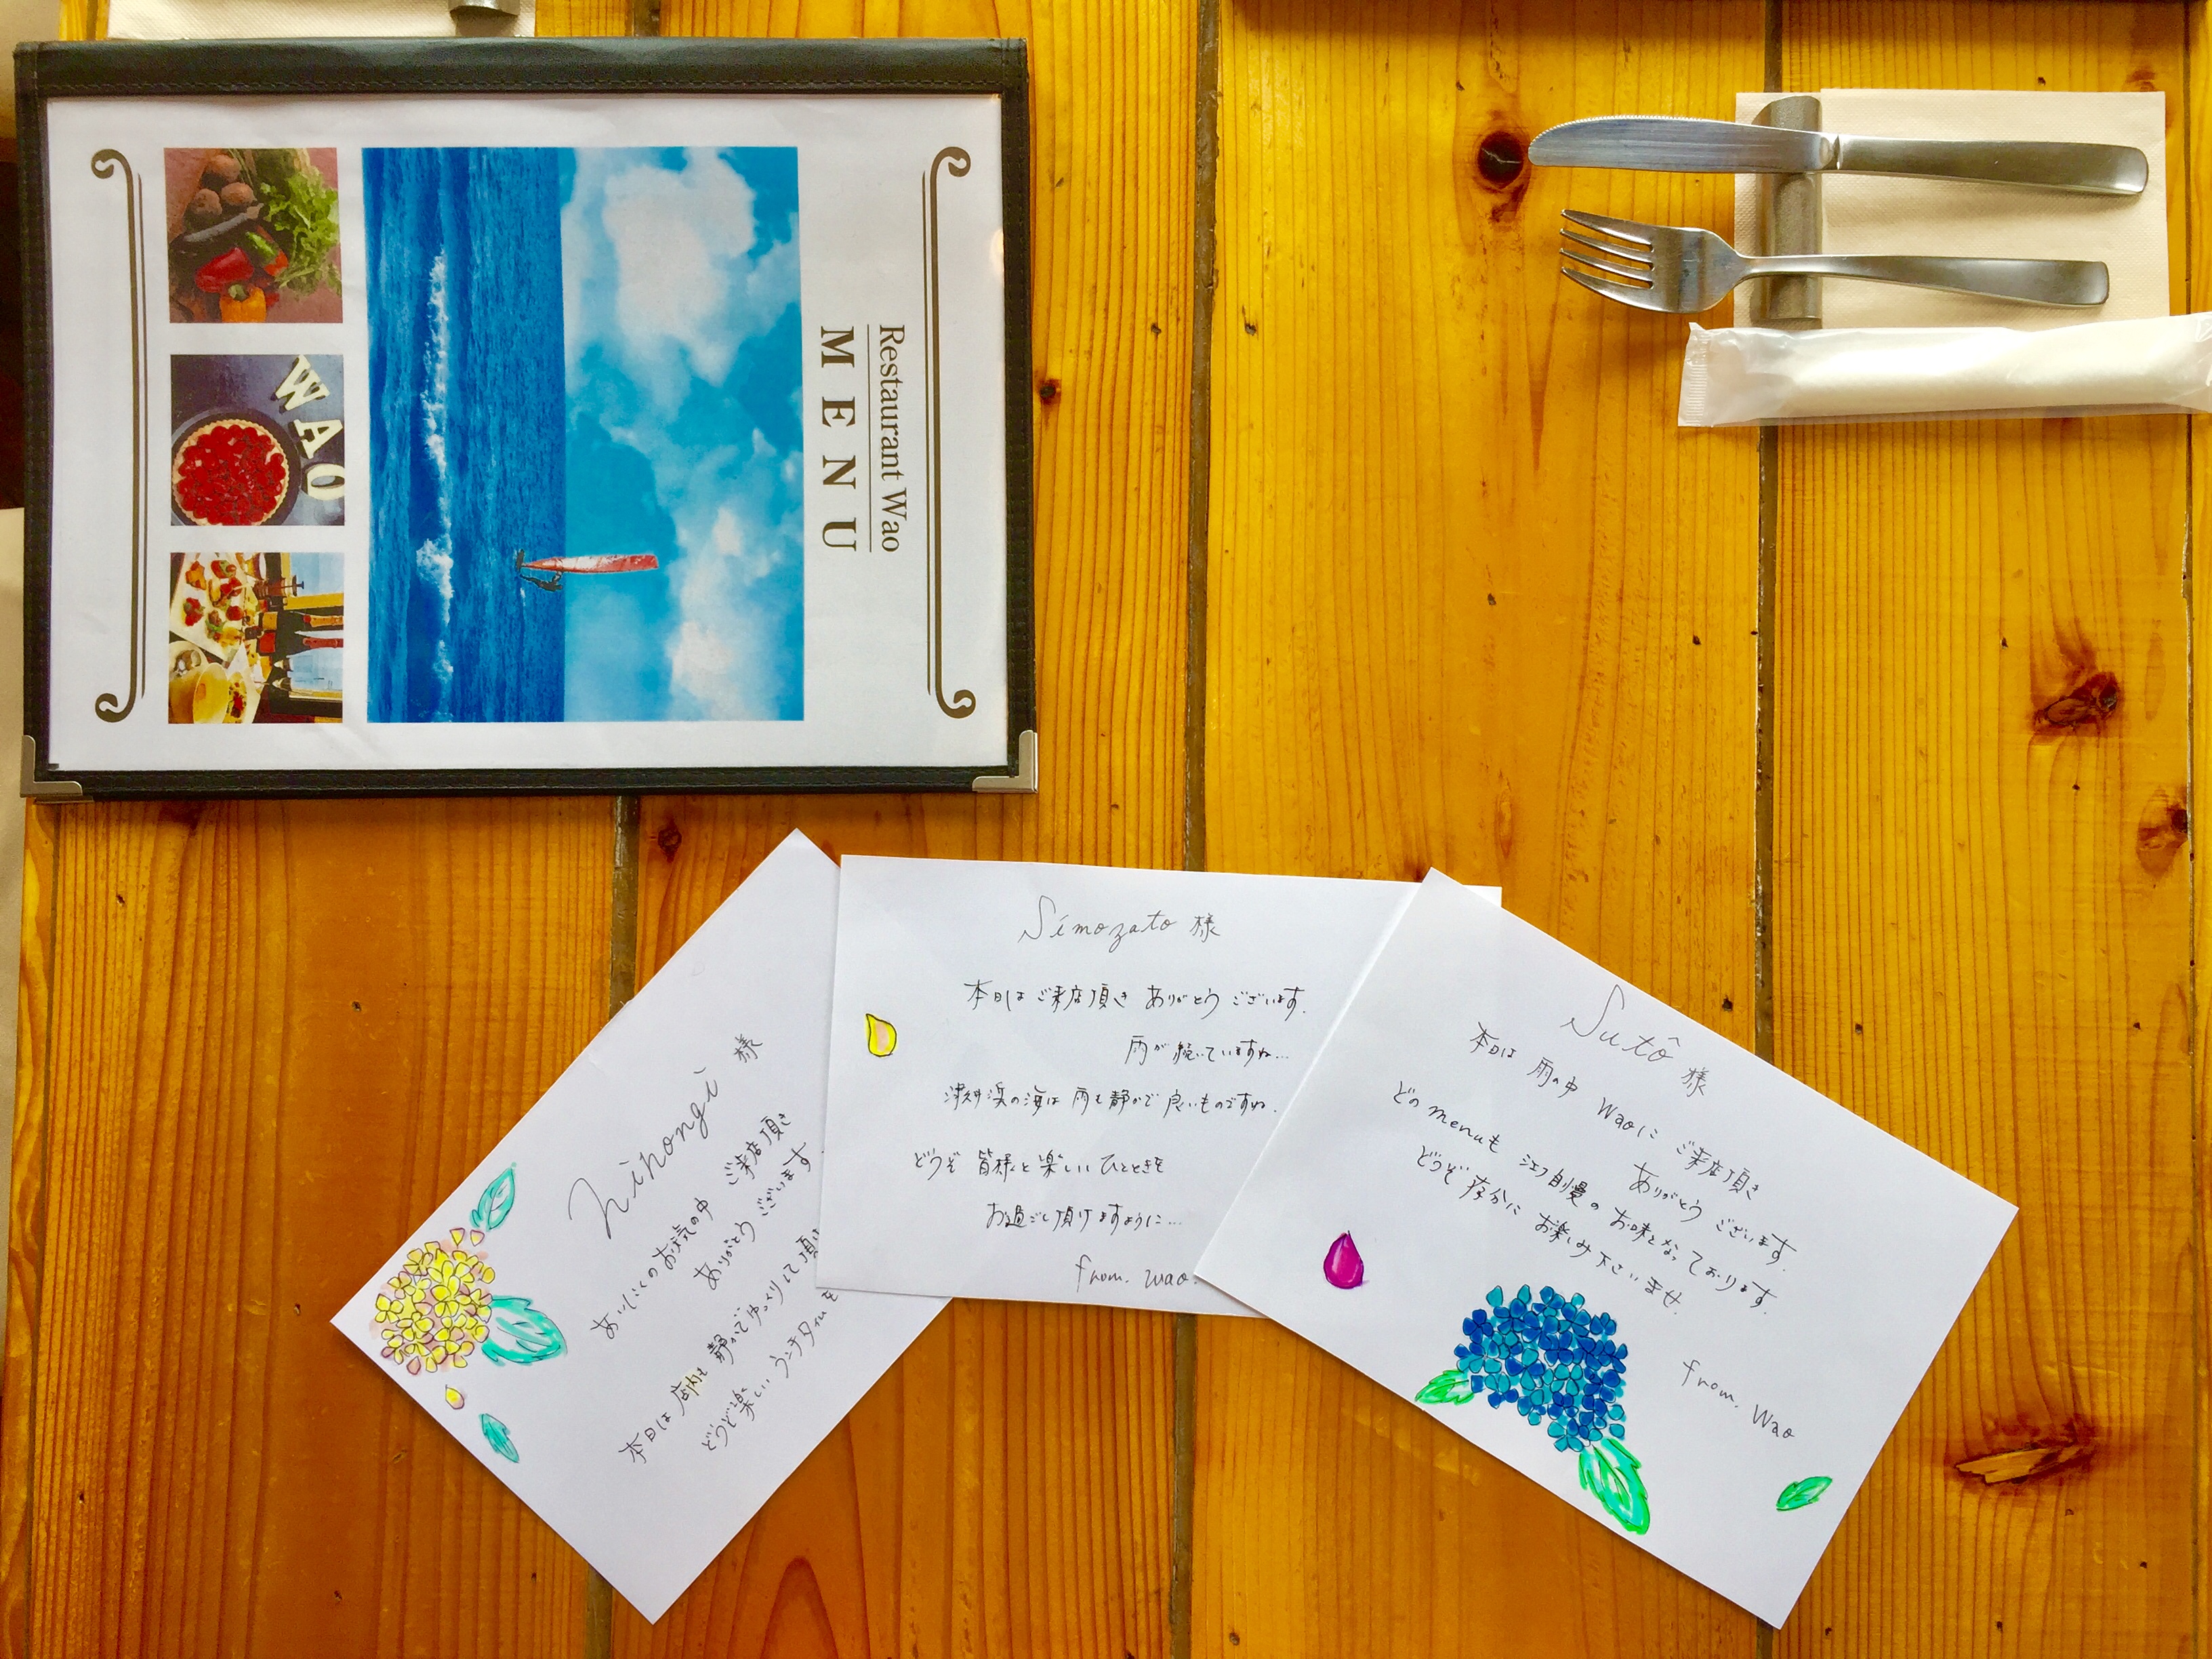 Restaurant Wao
MENU
WAO
Nihongi 様
あいにくのお天気の中 ご来店頂き
ありがとう ございます
本日は 店内も 静かで ゆっくりして 頂け
どうぞ楽しい ランチタイムを
Simozato 様
本日は ご来店頂き ありがとう ございます.
雨が 続いていますね...
津久井浜の海は 雨も静かで 良いものですね.
どうぞ 皆様と楽しい ひとときを
お過ごし頂けますように...
from. wao.
Sutô 様
本日は 雨の中 Waoに ご来店頂き
ありがとう ございます.
どのmenuも シェフ自慢の お味となって おります.
どうぞ 存分に お楽しみ 下さいませ.
from. Wao